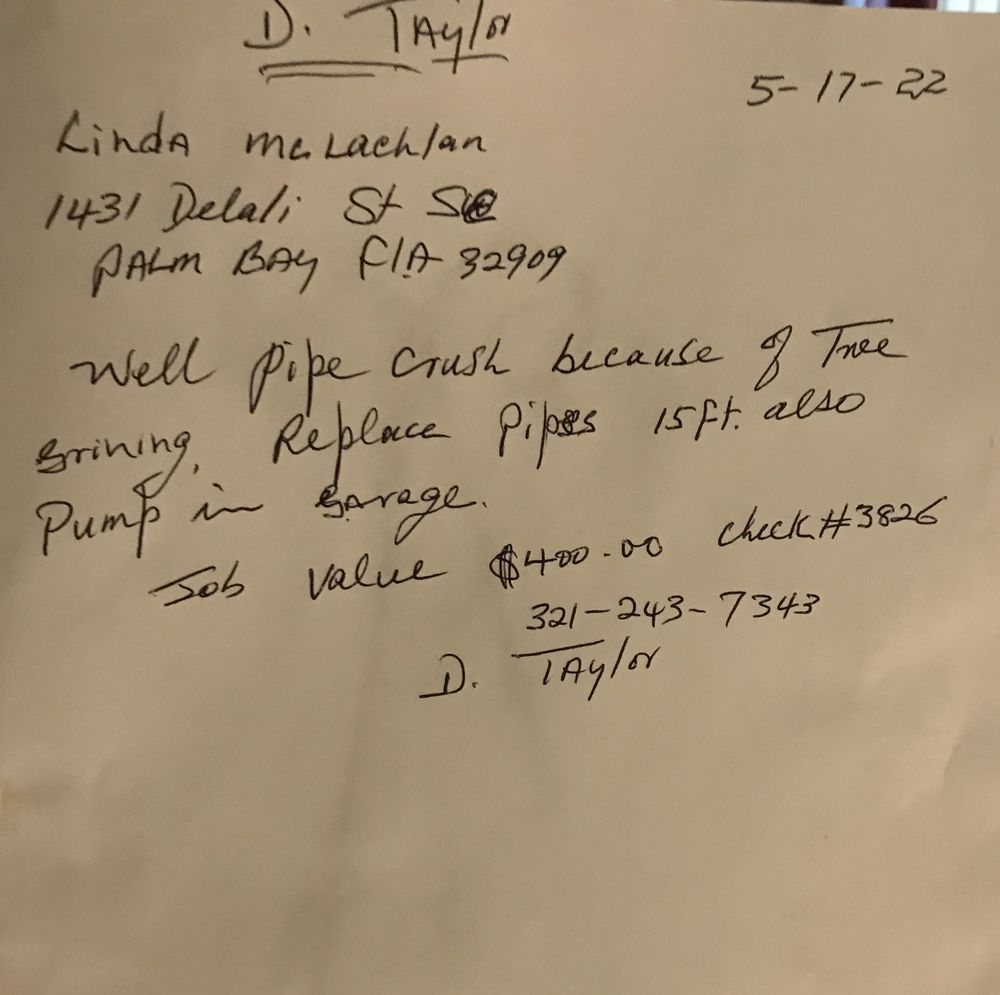 D. Taylor
5-17-22
Linda McLachlan
1431 Delali St SE
PALM BAY FlA 32909
Well Pipe Crush because of Tree
Grining, Replace Pipes 15ft. also
Pump in Garage.
Job value $400.00 check #3826
321-243-7343
D. Taylor